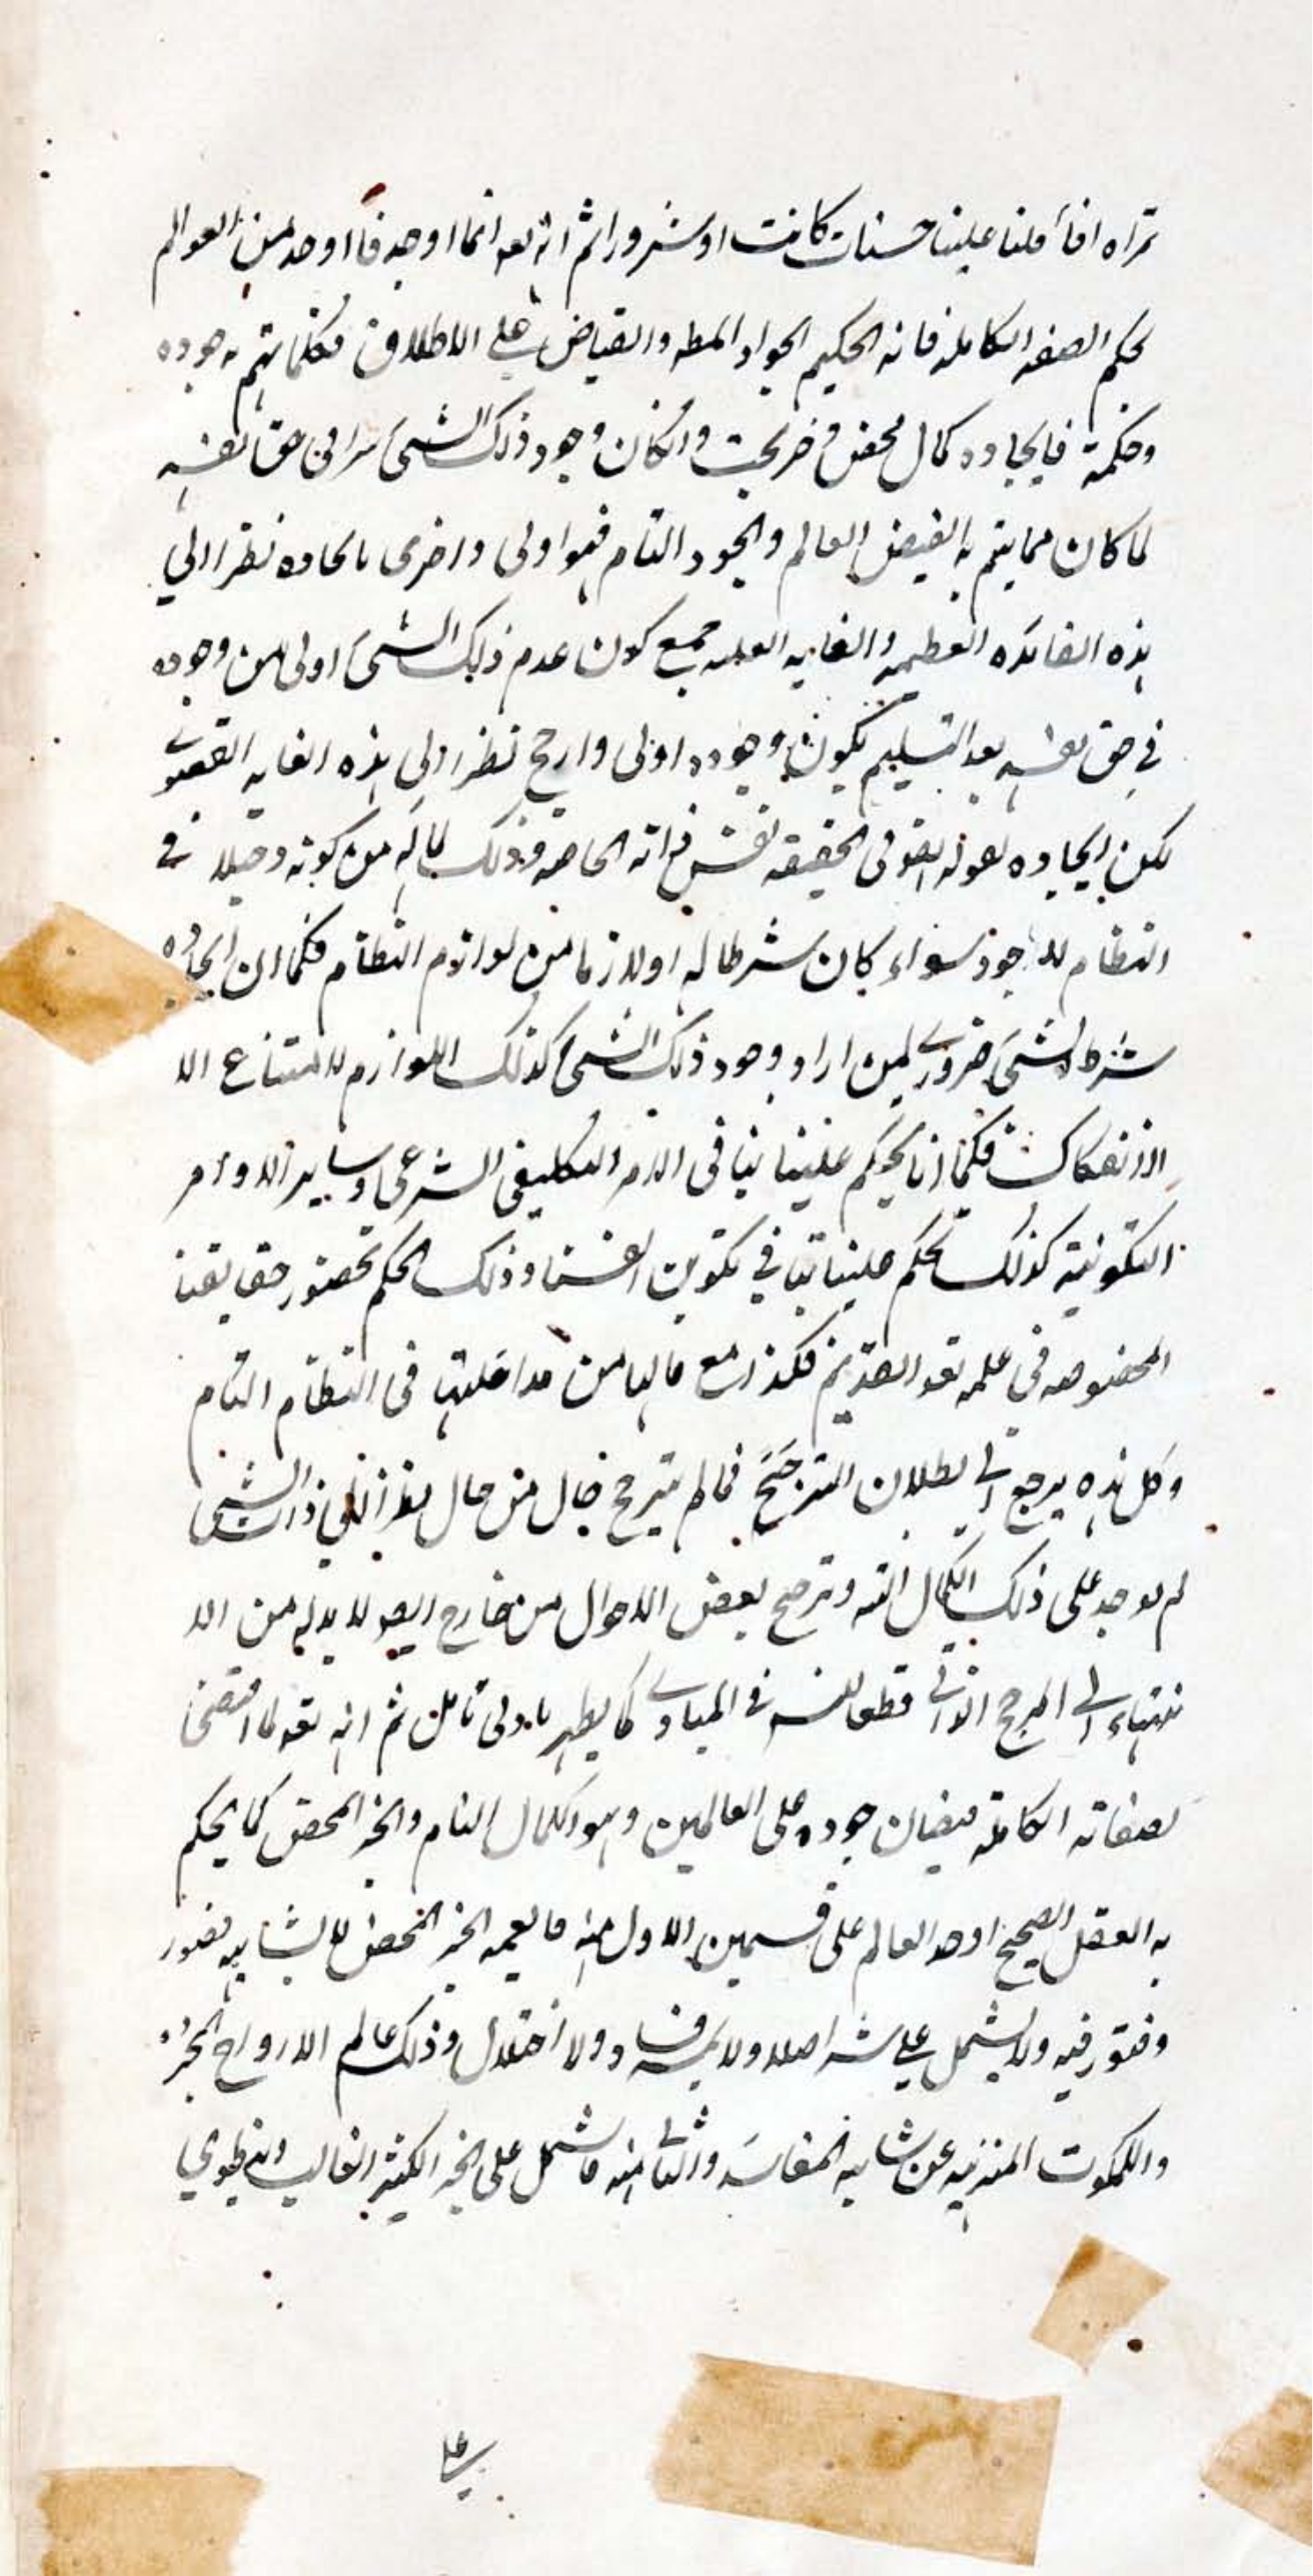 تراه افا فلنا علينا حسنات كانت او شرور اثم انه تعه انما اوجد فا اوجد من العوالم
بحكم الصفه الكامله فانه الحكيم الجواد المطه والفياض على الاطلاق فكلما يتم به جوده
وحكمة فايجاده كمال محض وخر بحت وانكان وجود ذلك الشىء سرا فى حق نفسه
لما كان مما يتم به الفيض العالم والجود التام فهوا ولى واحرى بايجاده نظرا الي
هذه الفائده العظميه والغايه العليه فمع كون عدم ذلك الشىء اولى من وجوده
في حق نفسه بعد التسليم يكون وجوده اولى وارجح نظرا الى هذه الغايه القصوى
لكن ايجاده لقوله الحقيقه نفس ذاته الخاصه وذلك لما له من كونه دخيلا في
النظام للاجود سواء كان شرطا له او لازما من لوازم النظام فكما ان ايجاده
شرط الشىء ضرورى لمن اراد وجود ذلك الشىء كذلك اللوازم لامتناع الا
الانفكاك فكما انا نحكم علينا بنا فى الامر التكليفى الشرعى وساير الاوامر
التكوينية كذلك نحكم علينا بنا في تكوين انفسنا وذلك الحكم بحضور حقايقنا
المخصوصه في علمه تعه القديم فكذا مع مالها من مداخلتها فى النظام التام
وكل هذه يرجع الى بطلان الترجيح فما لم يترجح حال من حال نظرا الى ذات الشىء
لم يوجد على ذلك الكمال البته وترجح بعض الاحوال من خارج ايضا لابد له من الا
نتهاء الى المرجح الذاتى قطعا للتسه في المبادى كما يظهر بادنى تامل ثم انه تعه لما اقتضى
بصفاته الكاملة فيضان جوده على العالمين وهو الكمال التام والخر المحض كما يحكم
به العقل الصحيح اوجد العالم على قسمين الاول منه ما يعمه الخير المحض لا يشابه قصور
وفتور فيه ولا يشمل علي شر اصلا ولا يمسه فساد ولا اختلال وذلك عالم الارواح المجرده
والملكوت المنزهه عن شايبه المفاسد والثانى منه ما يشمل على الخير الكثير الغالب المنطوي
على